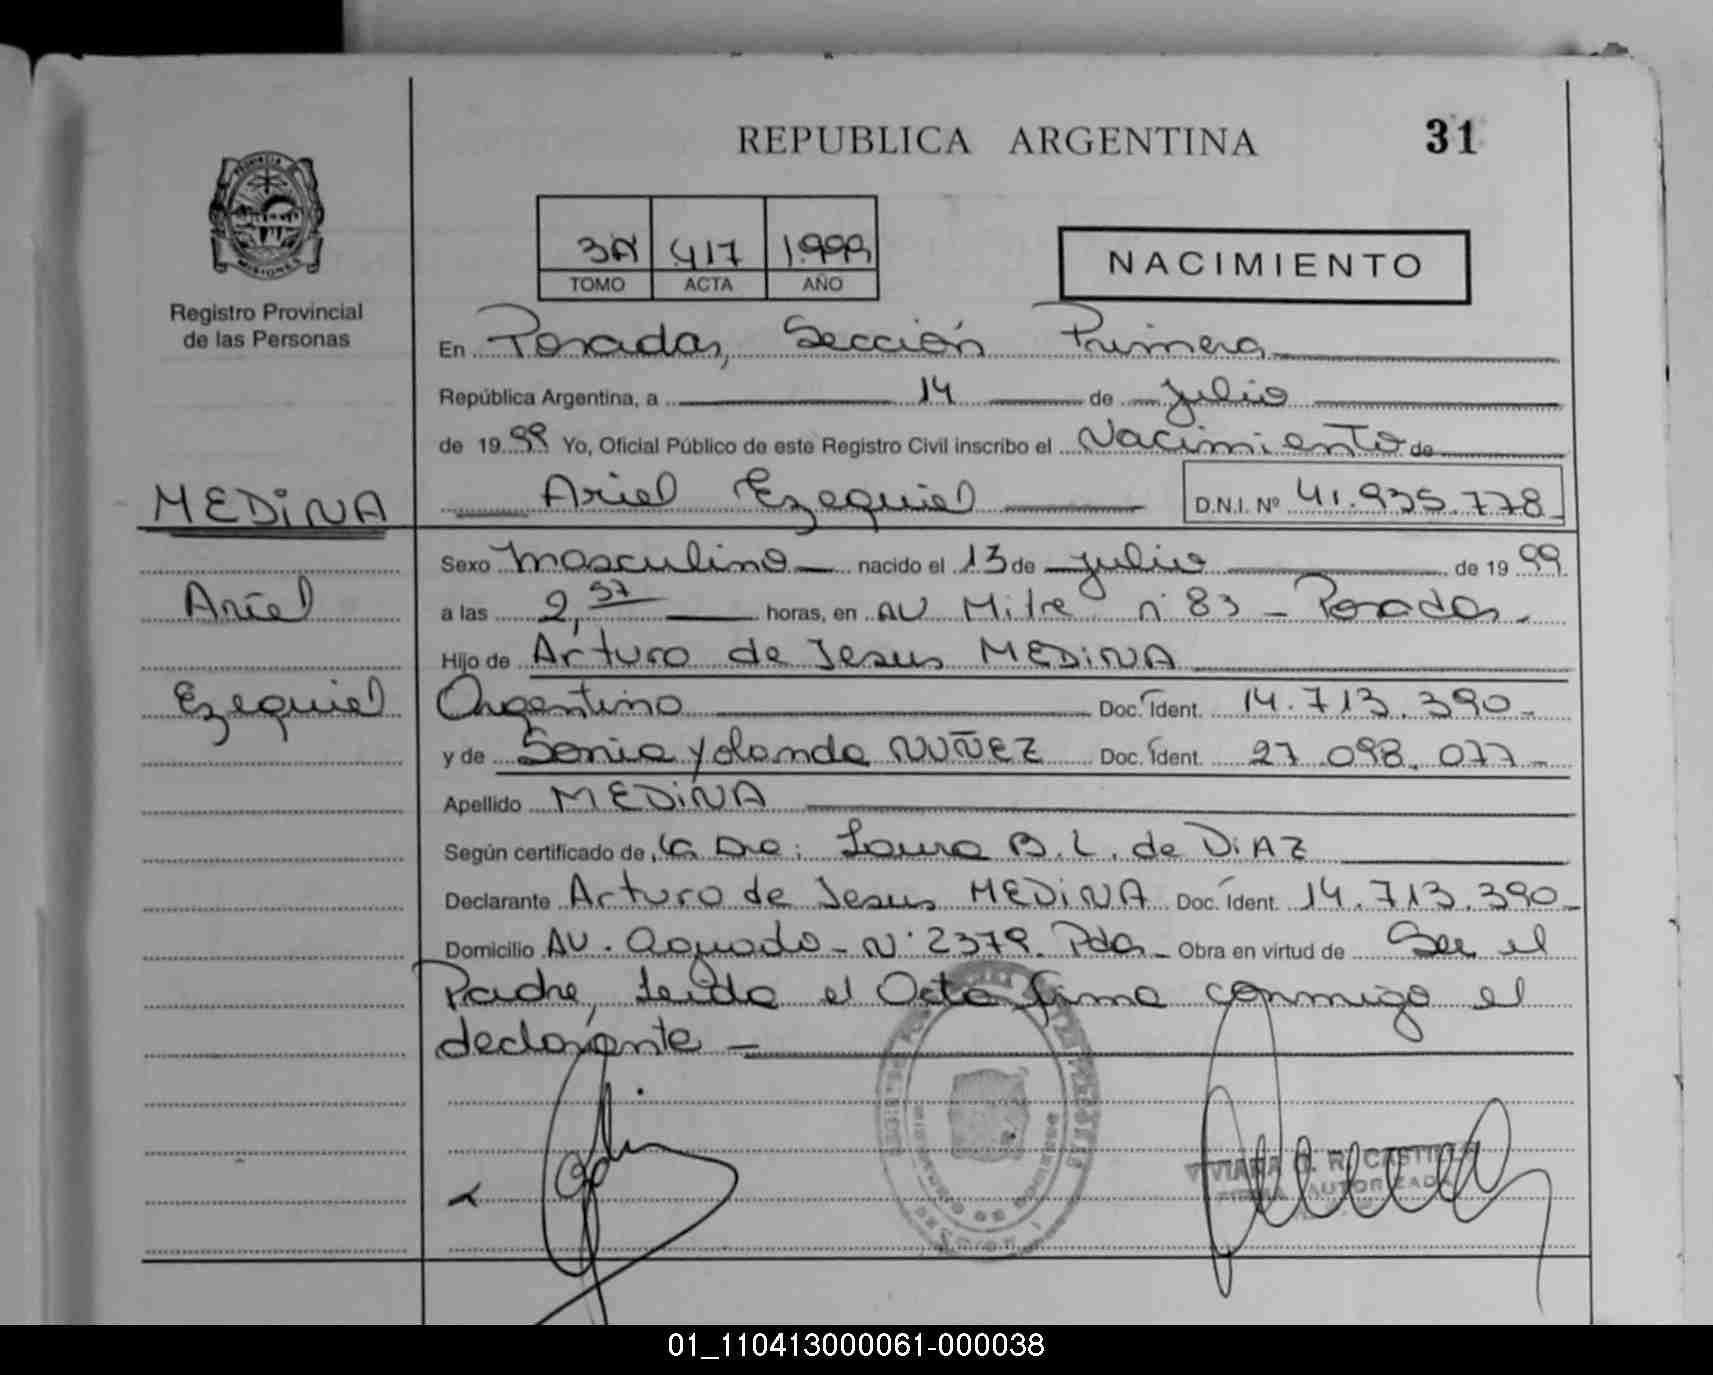 REPUBLICA ARGENTINA 31
PROVINCIA
MISIONES
Registro Provincial
de las Personas
3A 417 1.999
TOMO ACTA AÑO
NACIMIENTO
En Posadas, Sección Primera
República Argentina, a 14 de Julio
de 19 99 Yo, Oficial Público de este Registro Civil inscribo el Nacimiento de
MEDiNA
Ariel Ezequiel D.N.I. Nº 41.935.778
Sexo Masculino nacido el 13 de Julio de 19 99
Ariel
a las 2,57 horas, en AV Mitre nº 83 - Posadas.
Hijo de Arturo de Jesus MEDiNA
Ezequiel
Argentino Doc. Ident. 14.713.390-
y de Sonia Yolanda NUÑEZ Doc. Ident. 27.098.077-
Apellido MEDiNA
Según certificado de, la Dra: Laura B. L. de DiAZ
Declarante Arturo de Jesus MEDiNA Doc. Ident. 14.713.390-
Domicilio AV. Aguado - Nº 2379. Pdas - Obra en virtud de Ser el
Padre, Leida el Acta firma conmigo el
declarante -
VIVIANA R. CASTI
FIRMA AUTORIZADA
01_110413000061-000038